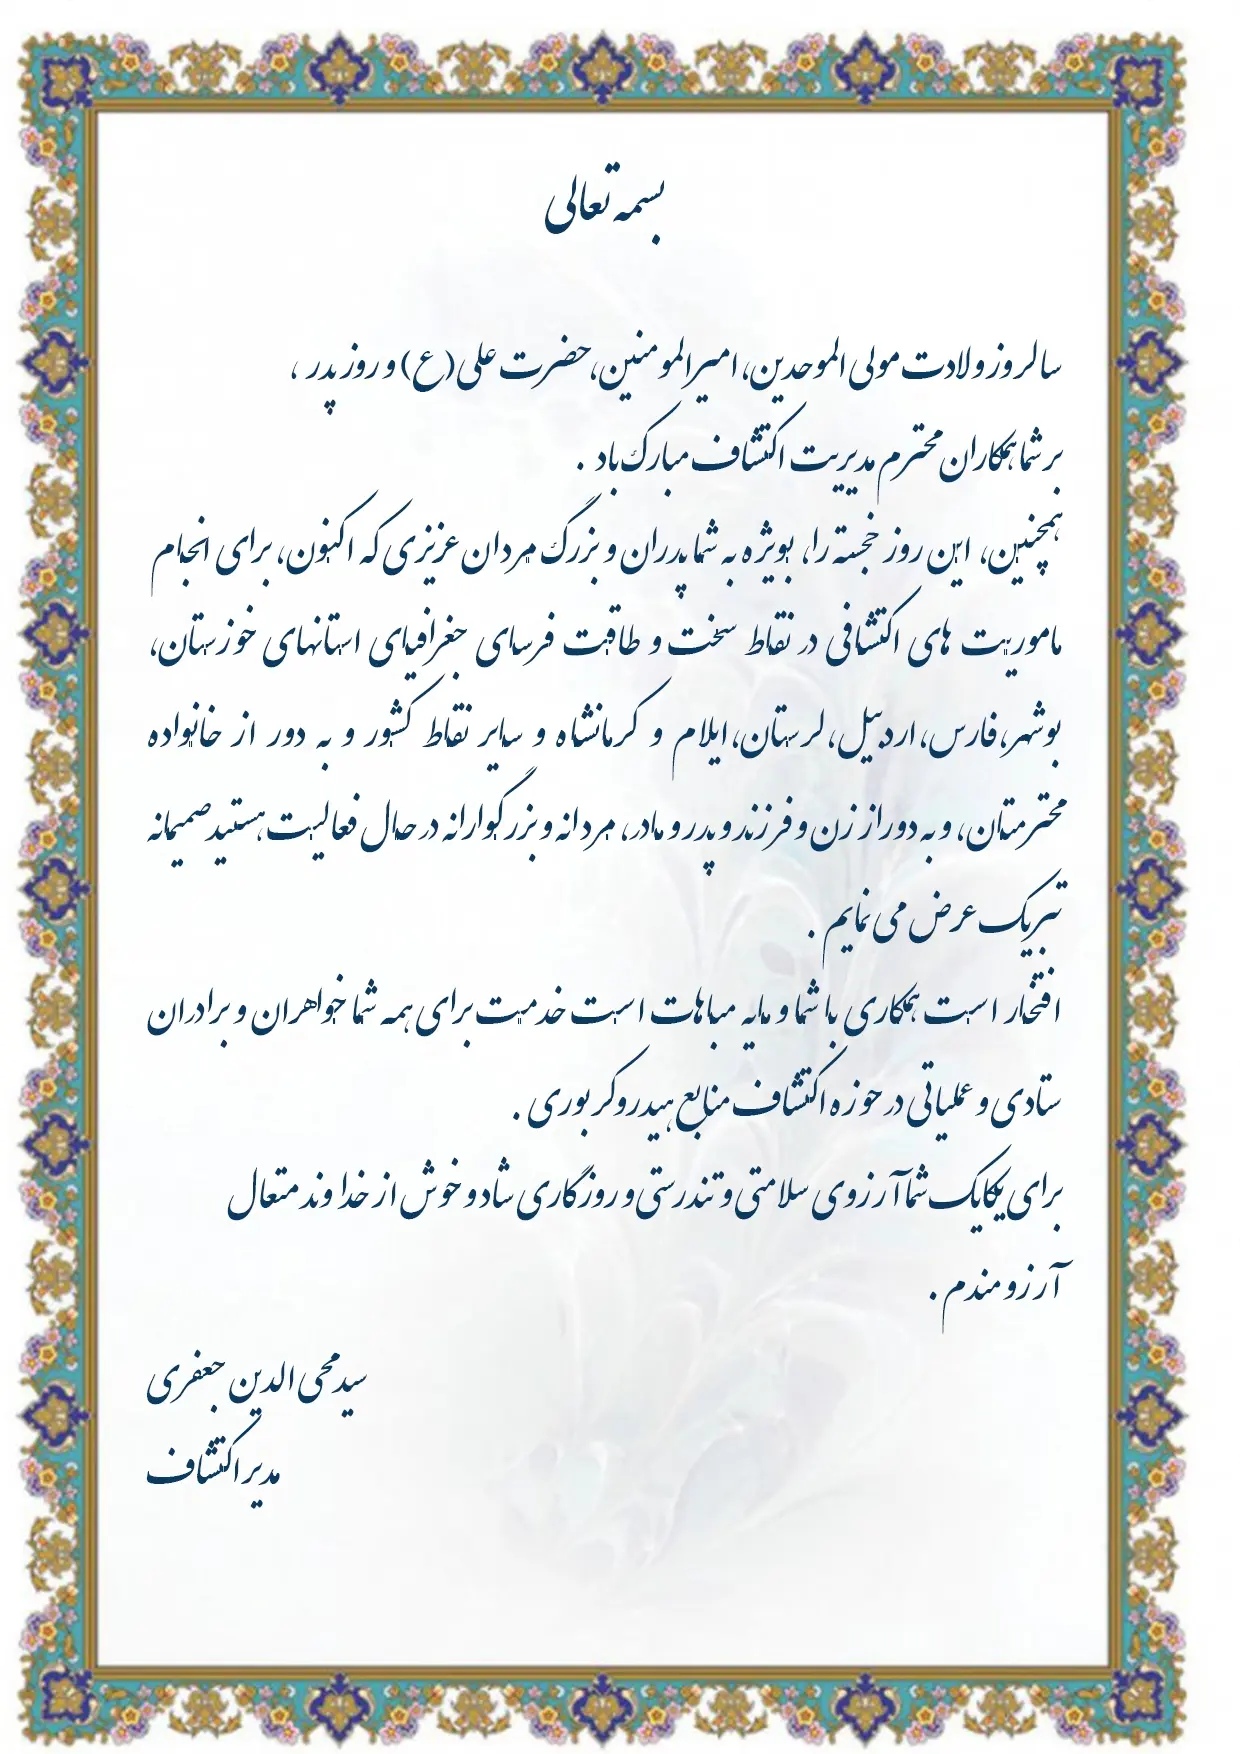 بسمه تعالی
سالروز ولادت مولی الموحدین، امیرالمومنین، حضرت علی (ع) و روز پدر ،
بر شما همکاران محترم مدیریت اکتشاف مبارک باد .
همچنین، این روز خجسته را، بویژه به شما پدران و بزرگ مردان عزیزی که اکنون، برای انجام
ماموریت های اکتشافی در نقاط سخت و طاقت فرسای جغرافیای استانهای خوزستان،
بوشهر، فارس، اردبیل، لرستان، ایلام و کرمانشاه و سایر نقاط کشور و به دور از خانواده
محترمتان، و به دور از زن و فرزند و پدر و مادر، مردانه و بزرگوارانه در حال فعالیت هستید صمیمانه
تبریک عرض می نمایم .
افتخار است همکاری با شما و مایه مباهات است خدمت برای همه شما خواهران و برادران
ستادی و عملیاتی در حوزه اکتشاف منابع هیدروکربوری .
برای یکایک شما آرزوی سلامتی و تندرستی و روزگاری شاد و خوش از خداوند متعال
آرزومندم .
سید محی الدین جعفری
مدیر اکتشاف